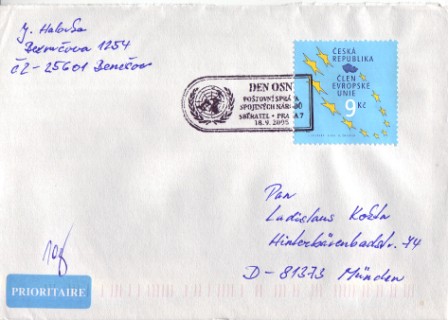 J. Halovša
Bezručova 1254
CZ-25601 Benešov
DEN OSN
POŠTOVNÍ SPRÁVA
SPOJENÝCH NÁRODŮ
SBĚRATEL · PRAHA 7
18.9.2005
ČESKÁ
REPUBLIKA
ČLEN
EVROPSKÉ
UNIE
9 Kč
Pan
Ladislaus Košta
Hinterbärenbadstr. 74
D-81373 München
PRIORITAIRE